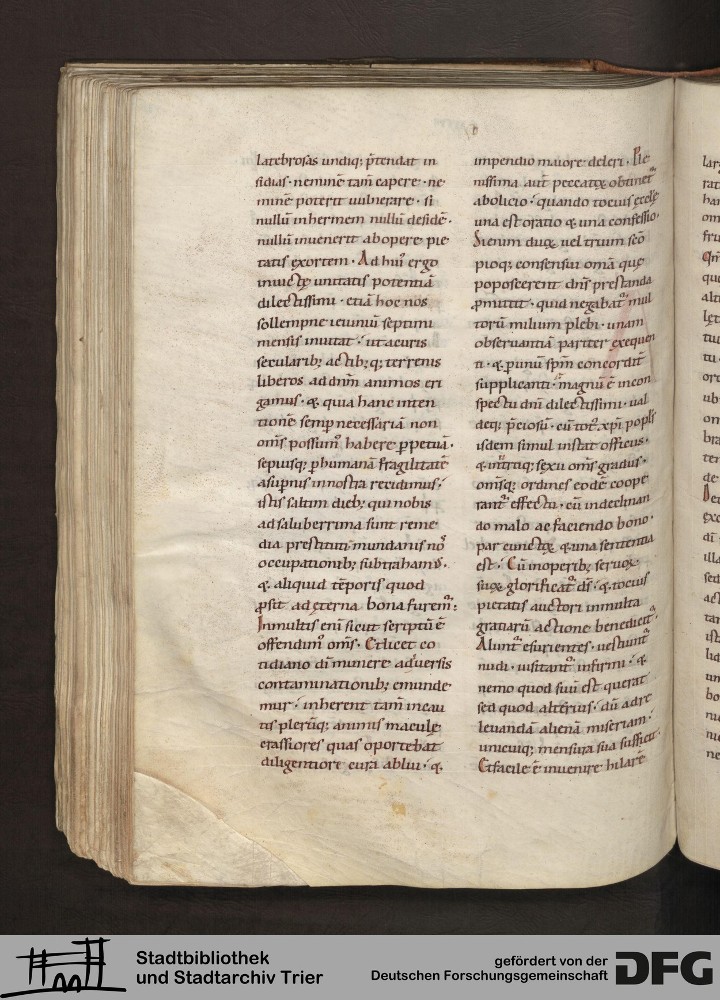 latebrosas undiq; p̄tendat in
sidias· neminē tam̄ capere· ne
minē poterit vulnerare· si
nullū inhermem nullū desidē·
nullū invenerit abopere pie
tatis exortem· Ad hui᷒ ergo
invictę unitatis potentiā
dilectissimi· etiā hoc nos
sollempne ieiuniū septimi
mensis invitat· ut acuris
secularib; actib;q; terrenis
liberos ad dn̄m animos eri
gamus· & quia hanc inten
tionē semp necessariā non
om̄s possum᷒ habere ꝑpetuā·
sepiusq; ꝑhumanā fragilitatē
asupnis innostra recidimus·
istis saltim dieb; qui nobis
ad saluberrima sunt reme
dia prestituti· mundanis nō
occupationib; subtraham᷒·
& aliquid tēporis quod
ꝓsit ad ęterna bona furem᷒·
Inmultis eni sicut scriptū ē
offendim᷒ om̄s· Et licet co
tidiano di munere adversis
contaminationib; emunde
mur· inherent tam̄ incau
tis plerūq; animis maculę
crassiores quas oportebat
diligentiore cura ablui· &
impendio maiore deleri· Ple
nissima aut̄ peccatoꝝ obtinet᷒
abolicio· quando toti᷒ ęcclę
una est oratio & una confessio·
Si enim duoꝝ vel trium sc̄o
pioq; consensui om̄a quę
poposcerent dn̄s prestanda
ꝓmittit· quid negabat᷒ mul
torū milium plebi· unam
observantiam pariter exequen
ti· & p unū sp̄m concordit̄
supplicanti· magnū ē incon
spectu dn̄i dilectissimi· val
deq; p̄ciosū· cū tot᷒ xp̄i popl̄s
isdem simul instat officiis·
& inutriq; sexu om̄s gradus·
om̄sq; ordines eodē coope
rant᷒ effectu· cū indeclinan
do malo ac faciendo bono·
par cunctoꝝ & una sententia
est· Cū inoperib; servoꝝ
suoꝝ glorificat᷒ ds̄· & toti᷒
pietatis auctori inmulta
gratiarū actione benedicit᷒·
Alunt᷒ esurientes· vestiunt᷒
nudi· visitant᷒ infirmi· &
nemo quod suū est querat
sed quod alterius· dū ad re
levandā alienā miseriam·
unicuiq; mensura sua sufficit·
Et facile ē invenire hilarē
Stadtbibliothek
und Stadtarchiv Trier
gefördert von der
Deutschen Forschungsgemeinschaft
DFG